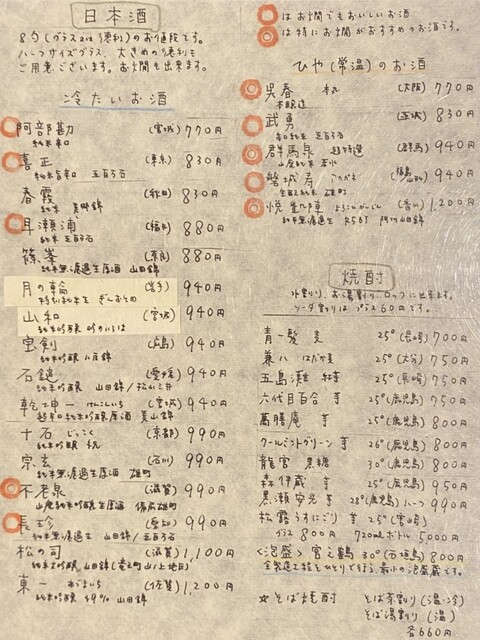 日本酒
8勺(グラス2は1徳利)のお値段です。
ハーフサイズグラス、大きめの徳利も
ご用意ございます。お燗も出来ます。
冷たいお酒
阿部勘 (宮城) 770円
純米辛口
喜正 (東京) 830円
純米 五百万石
春霞 (秋田) 830円
純米 美郷錦
早瀬浦 (福井) 880円
純米 五百万石
篠峯 (奈良) 880円
純米無濾過生原酒 山田錦
月の輪 (岩手) 940円
特別純米生 ぎんおとめ
山和 (宮城) 940円
純米吟醸 吟のいろは
宝剣 (広島) 940円
純米吟醸 八反錦
石鎚 (愛媛) 940円
純米吟醸 山田錦/松山三井
乾坤一 けんこんいち (宮城) 940円
超辛口純米吟醸原酒 美山錦
十石 じっこく (京都) 990円
純米吟醸 祝
宗玄 (石川) 990円
純米無濾過生原酒 雄町
不老泉 (滋賀) 990円
山廃純米吟醸生原酒 備前雄町
長珍 (愛知) 990円
純米無濾過生 山田錦/五百万石
松の司 (滋賀) 1,100円
純米大吟醸 山田錦
東一 あづまいち (佐賀) 1,200円
純米吟醸 49% 山田錦
はお燗でもおいしいお酒
は特にお燗がおすすめのお酒です。
ひや(常温)のお酒
呉春 本丸 (大阪) 770円
本醸造
武勇 (茨城) 830円
辛口純米 五百万石
群馬泉 超特選 (群馬) 940円
山廃純米 若水
磐城寿 (福島) 940円
雄町
悦凱陣 よろこびがいじん (香川) 1,200円
純米無濾過生 R5BY 阿州山田錦
焼酎
水割り、お湯割り、ロックに出来ます。
ソーダ割りは プラス60円です。
青一髪 麦 25°(長崎) 700円
兼八 はだか麦 25°(大分) 750円
五島灘 紅芋 25°(長崎) 750円
六代目百合 芋 25°(鹿児島) 750円
萬膳庵 芋 25°(鹿児島) 800円
クールミントグリーン 芋 26°(鹿児島) 800円
龍宮 黒糖 30°(鹿児島) 800円
森伊蔵 芋 25°(鹿児島) 950円
黒瀬安光 芋 28°(鹿児島) ハーフ 990円
松露うすにごり 芋 25°(宮崎)
グラス 800円 720mlボトル 5000円
<泡盛> 宮之鶴 30°(石垣島) 800円
全製造工程をひとりで行う、最小の泡盛蔵です。
☆そば焼酎 そば茶割り(温・冷)
そば湯割り(温)
各660円